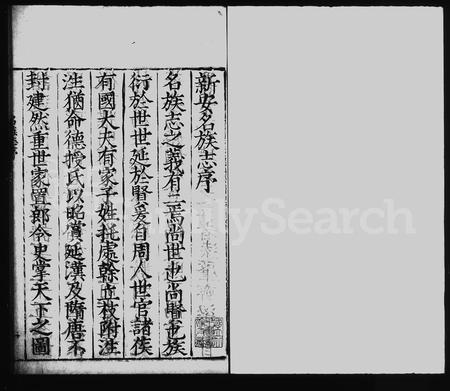 新安名族志序
名族志之義有二焉尚世也尚賢也族
衍於世世延於賢爰自周人世官諸侯
有國大夫有家子姓托處榦立枝附注
注猶命德授氏以昭賞延漢及隋唐不
封建然重世家置郎令史掌天下之圖
FamilySearch